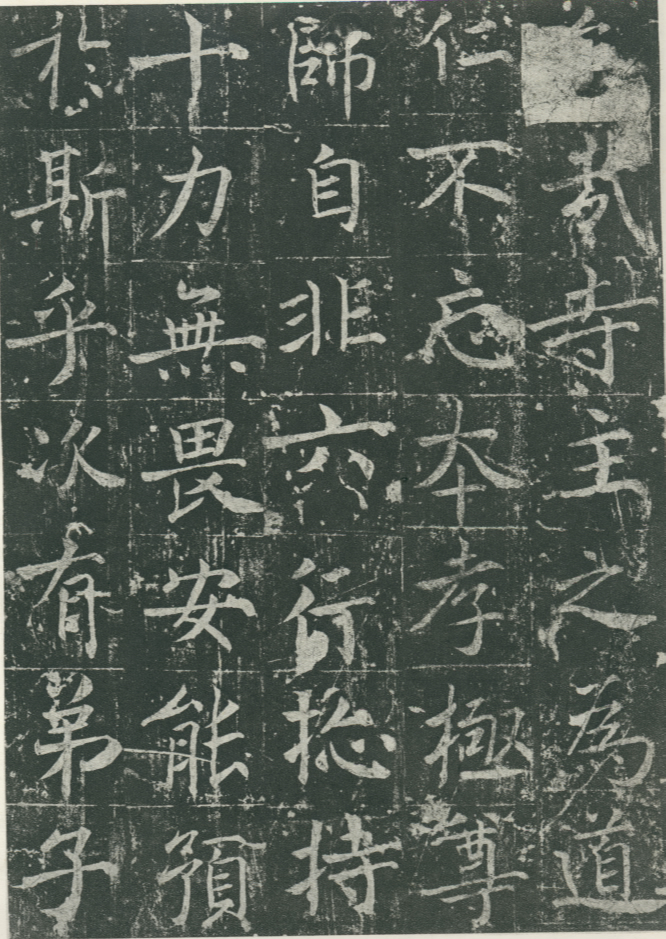 哉寺主之為道
仁不忘本孝極尊
師自非六行捴持
十力無畏安能預
於斯乎次有弟子